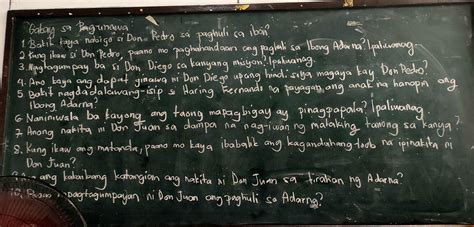 "Gabay sa Pag-unawa"
1. Bakit kaya nabigo si Don Pedro sa paghuli sa Ibon?
2. Kung ikaw si Don Pedro, paano mo paghahandaan ang paghuli sa Ibong Adarna? Ipaliwanag.
3. Nagtagumpay ba si Don Diego sa kaniyang misyon? Ipaliwanag.
4. Ano kaya ang dapat ginawa ni Don Diego upang hindi siya magaya kay Don Pedro?
5. Bakit nagdadalawang-isip si Haring Fernando na payagan ang anak na hanapin ang
Ibong Adarna?
6. Naniniwala ba kayong ang taong mapagbigay ay pinagpapala? Ipaliwanag.
7. Anong nakita ni Don Juan sa dampa na nag-iwan ng malaking tanong sa kanya?
8. Kung ikaw ang matanda, paano mo kaya ibabalik ang kagandahang-loob na ipinakita ni
Don Juan?
ang kakaibang katangian ang nakita ni Don Juan sa tirahan ng Adarna?
10. pagtagumpayan ni Don Juan ang paghuli sa Adarna?